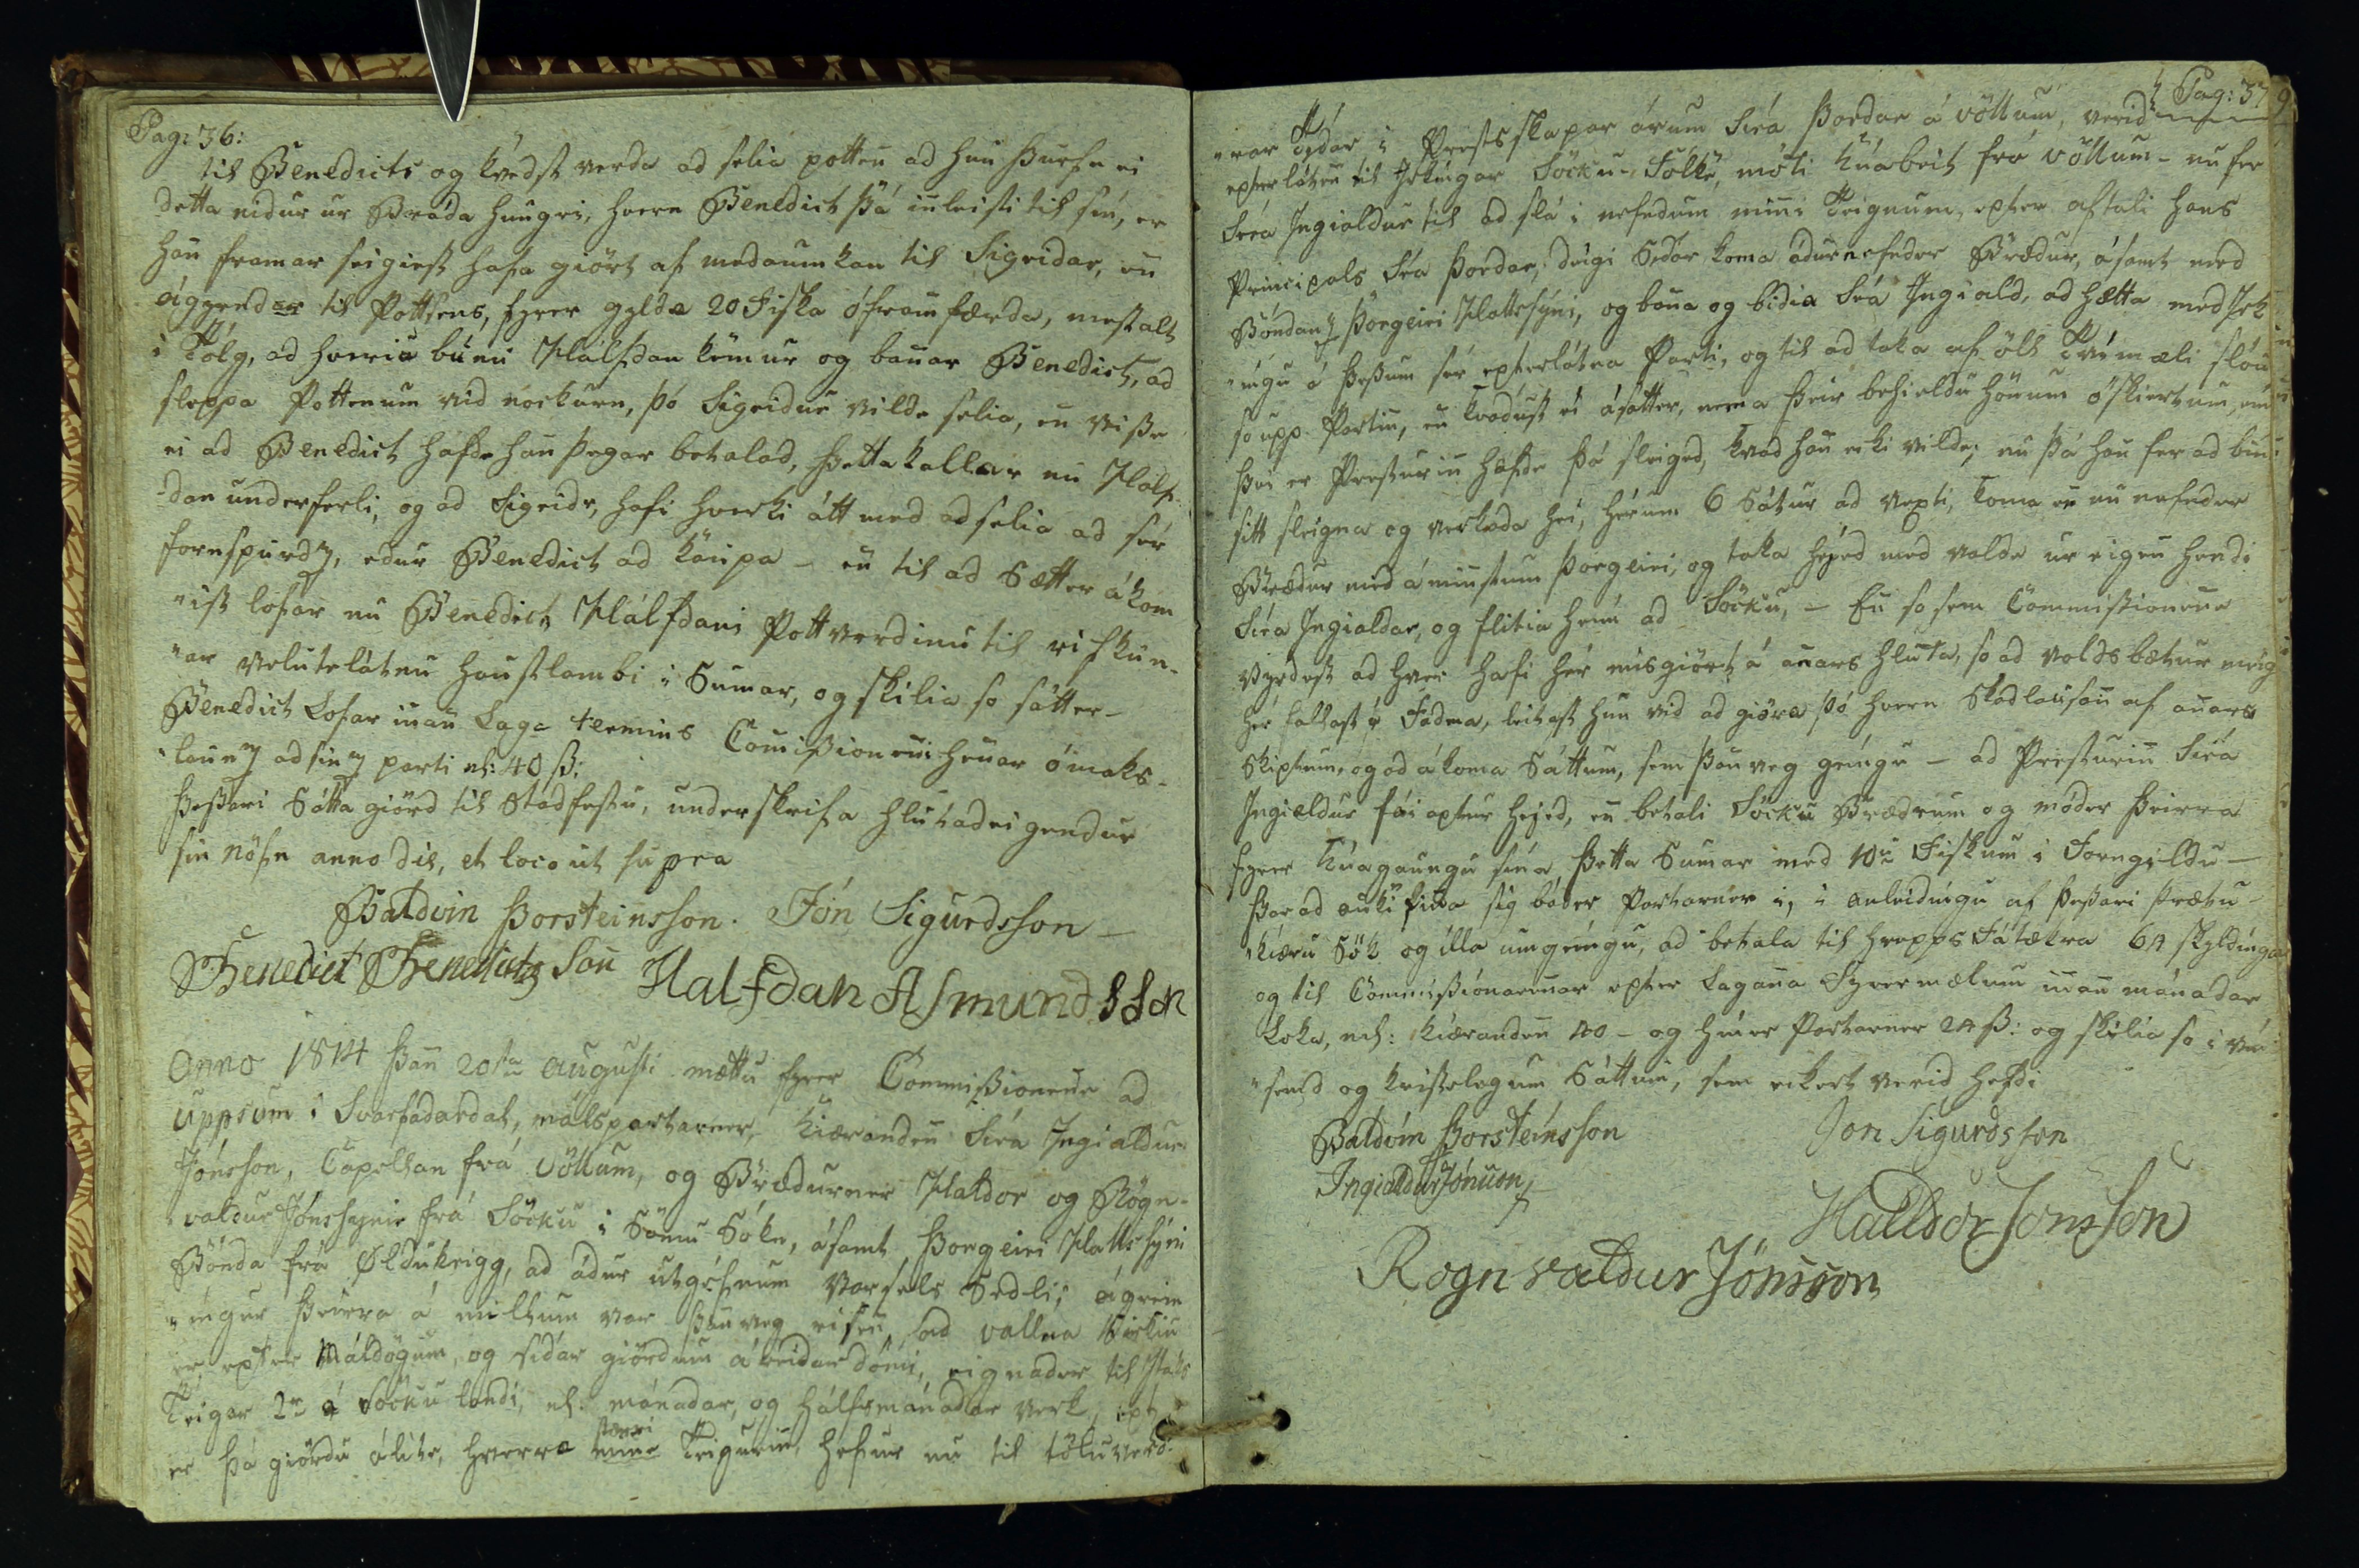 Pag: 36:
til Benedicts og kvedst verda ad selia potten ad hun þurfe ei
detta nidur ur Bráda hungri, hvern Benedict þá innleisti til sin, er
han framar seigiest hafa giört af medaumkan til Sigridar, en
ággendar til Pottsens, fyrer gylda 20 Fiska óframfærda, mest alt
i Tólg, ad hverju bunu Hálfdan kemur og bannar Benedict, ad
sleppa Pottenum vid nockurn, þó Sigridur vilde selia, en visse
ei ad Benedict hafde han þegar betalad, þetta kallar nu Hálf-
dan underferli, og ad Sigridr, hafi hverki átt med ad selia ad sér
fornspurdum, edur Benedict ad kaupa - en til ad Sætter ákom
"ist lofar nu Benedict Hálfdani Pottverdinu til vidkun-
"ar velutelátnu haustlambi i Sumar, og skilia so sátter -
Benedict Lofar innan Laga termins Comissioninni hennar ómaks-
"launum ad sinum parti nl: 40 ß:
Þessari Sátta giörd til Stadfestu, underskrifa hlutadeigendur
sin nöfn anno die, et loco ut supra
Baldvin Þorsteinsson. Jón Sigurdsson -
Benedict Benedictz Son Halfdan Asmundsson
Anno 1814 þann 20ta Augusti mættu fyrer Commissioninne ad
Uppsum i Svarfadardal, málspartarner, Kiæranden Sira Ingialdur
Jónsson, Capellan frá Völlum, og Brædurner Haldor og Rögn-
"valdur Jónssynir frá Söcku i Sömu Sókn, ásamt Þorgeiri Hallssyni
Bónda frá Öldukrigg, ad ádur utgefnum Varsels Sedli; ágrein
"ingur þeirra á millum var þannveg risen, ad vallna Kirkiu
er, epter Máldögum, og sidar giördum áreidar dómi, eignader til Slátts
Teigar 2r á Söckulandi, nl: mánadar, og hálfsmánadar verk, ept
er þá giördu álite, hverra stærri Teigurin, hefur nu til tökuverd-
Pag: 37
"rar Tydar i Prests skapar árum Sira Þordar á völlum, verid
epterláten til Yrkingar Söcku-Fólke, móti Kúabeit frá völlum - nu fer
Sira Ingialdur til ad slá i nefndum minni Teignum, epter aftali hans
Principals Sra Þordar, deigi Sedar koma ádurnefnder Brædur, ásamt med
Bóndanum Þorgeiri Hallssyni, og bana og bidia Sra Ingiald, ad hætta med Yrk
"ingu á þessum sér epterlátna Parti, og til ad taka af öll Tvimæli slóu
so upp Partin, en kvádust ei ásátter, nema þeir behieldu hönum óskiertum, en
þvi er Presturin hafde þá sleiged, kvad han ecki vilde; nu þá han fer ad binda
sitt sleigna og verkada hei, hérum 6 Sátur ad vexti, koma en nu nefnder
Brædur med áminstum Þorgeiri, og taka heyed med valde ur eigen hendi
Sira Ingialdar, og flitia heim ad Söcku, - En so sem Commissionenne
virdest ad hver hafi hér misgiört á anars hluta, so ad valdsbætur meig
her kallast i Fadma, leitast hun vid ad giöra þó hvern Skadlausan af anars
Skiptum, og ad ákoma Sáttum, sem þannveg geingu - ad Presturin Sira
Ingialdur fái aptur heied, en betali Söcku Brædrum og móder þeirra
fyrer Kúagaungu sina þetta Sumar med 10u Fiskum i Forngildu -
þar ad auki finna sig báder Partarner i, i anleidingu af þessari þrætu-
"kiæru Sök og illa umgeingu, ad betala til hrepps Fátækra 64 skyldinga
og til Commissionarinnar epter Laganna Fyrermælum innan mánadar
Loka, nl: Kiæranden 40 - og hiner Partarner 24 ß: og skilia so i vin
"semd og kristelegum Sáttum, sem eikert verid hefdi
Baldvin Þorsteinsson Jon Sigurdsson
Ingialdur Jónsson
Halldór Jonsson
Rognvaldur Jónsson